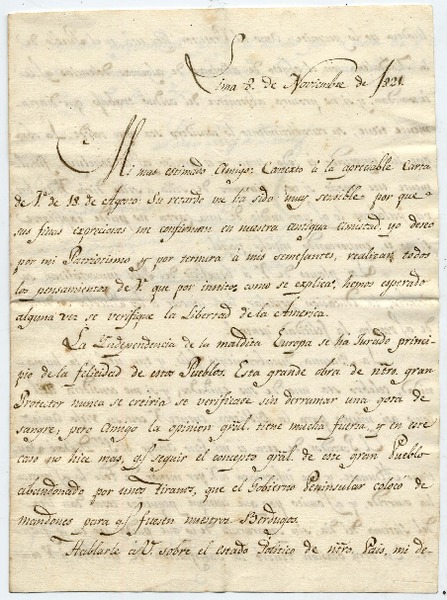 Lima 8. de Noviembre de 1821.
Mi mas estimado Amigo: Contexto à la apreciable Carta
de V. de 18. de Agosto: Su retardo me ha sido muy sensible por que
sus finas expreciones me confirman en nuestra antigua amistad, yo deseo
por mi Patriotismo y por ternura à mis semejantes, realizar todos
los pensamientos de V. que por innitos como se explica, hemos esperado
alguna vez se verifique la Libertad de la America.
La Independencia de la maldita Europa se ha Jurado princi-
pio de la felicidad de estos Pueblos. Esta grande obra de ntro. gran
Protector nunca se creiria se verificase sin derramar una gota de
sangre; pero Amigo la opinion gral. tiene mucha fuerza, y en este
caso no hice mas, q.e seguir el concepto gral. de este gran Pueblo
abandonado por unos Tiranos, que el Gobierno Peninsular coloco de
mandones para q.e fuesen nuestros Berdugos.
Hablarle à V. sobre el estado Politico de ntro. Pais, mi de-